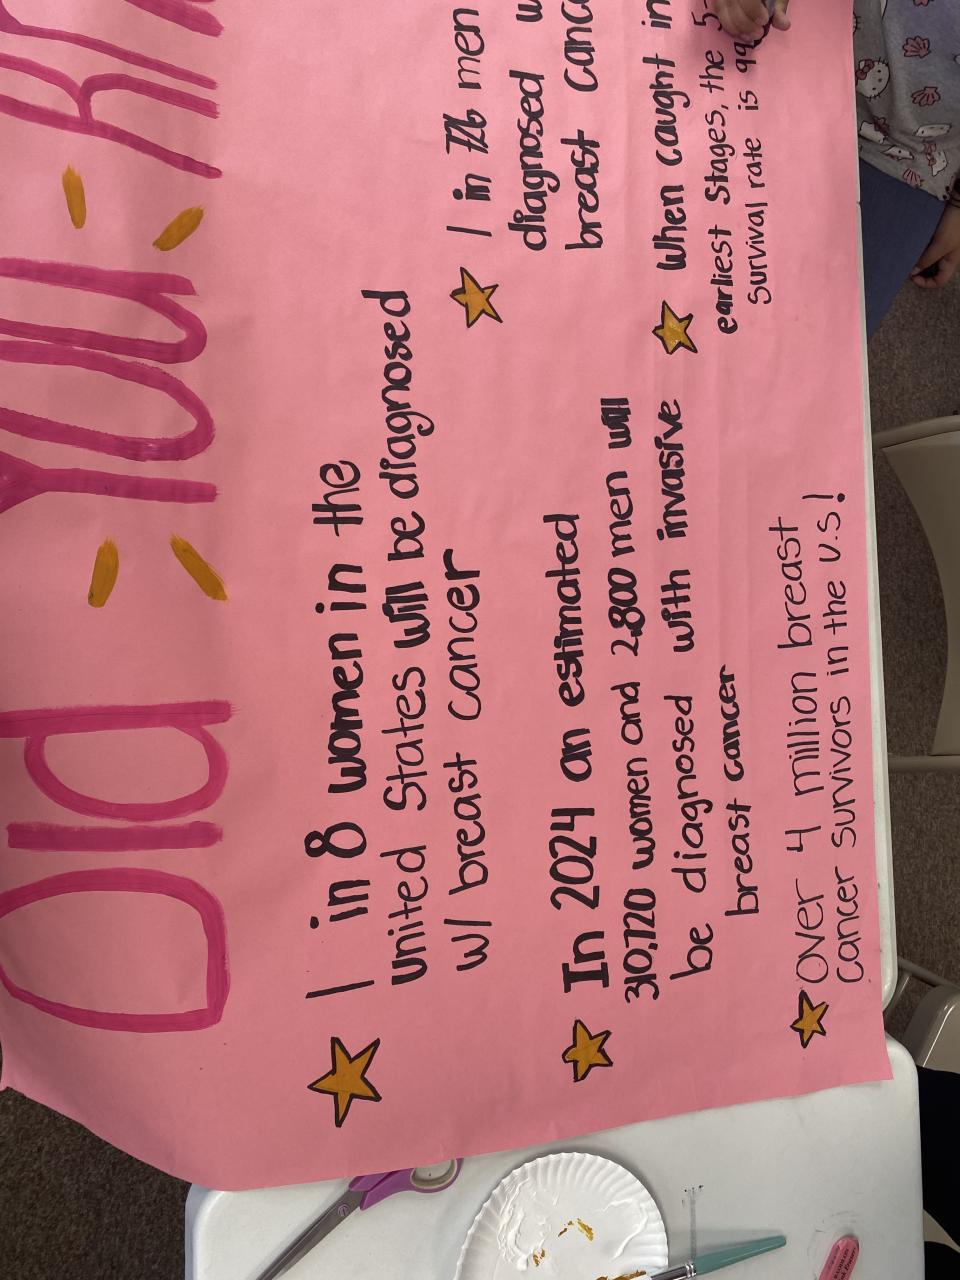 Did You
1 in 8 women in the
United States will be diagnosed
w/ breast cancer
In 2024 an estimated
310,720 women and 2,800 men will
be diagnosed with invasive
breast cancer
Over 4 million breast
cancer survivors in the U.S!
1 in 726 men
diagnosed
breast
When caught in
earliest Stages, the 5-
Survival rate is 99